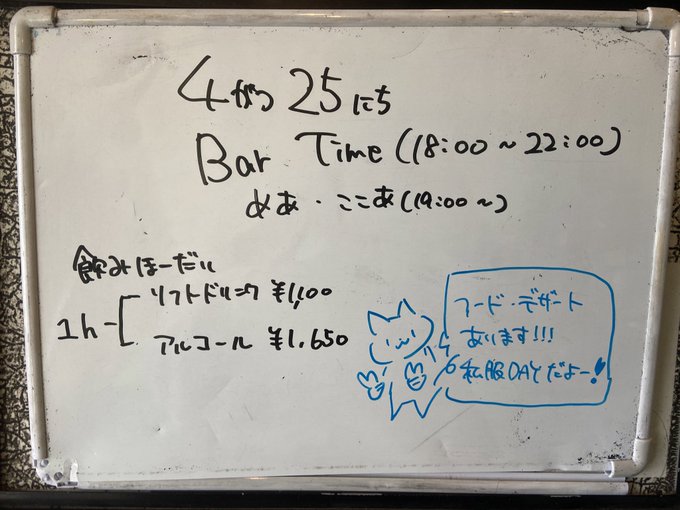 4がつ25にち
Bar Time (18:00～22:00)
めあ・ここあ(19:00～)
飲みほーだい
1h
ソフトドリンク ¥1,100
アルコール ¥1,650
フード・デザート
あります!!!
私服DAYだよー!